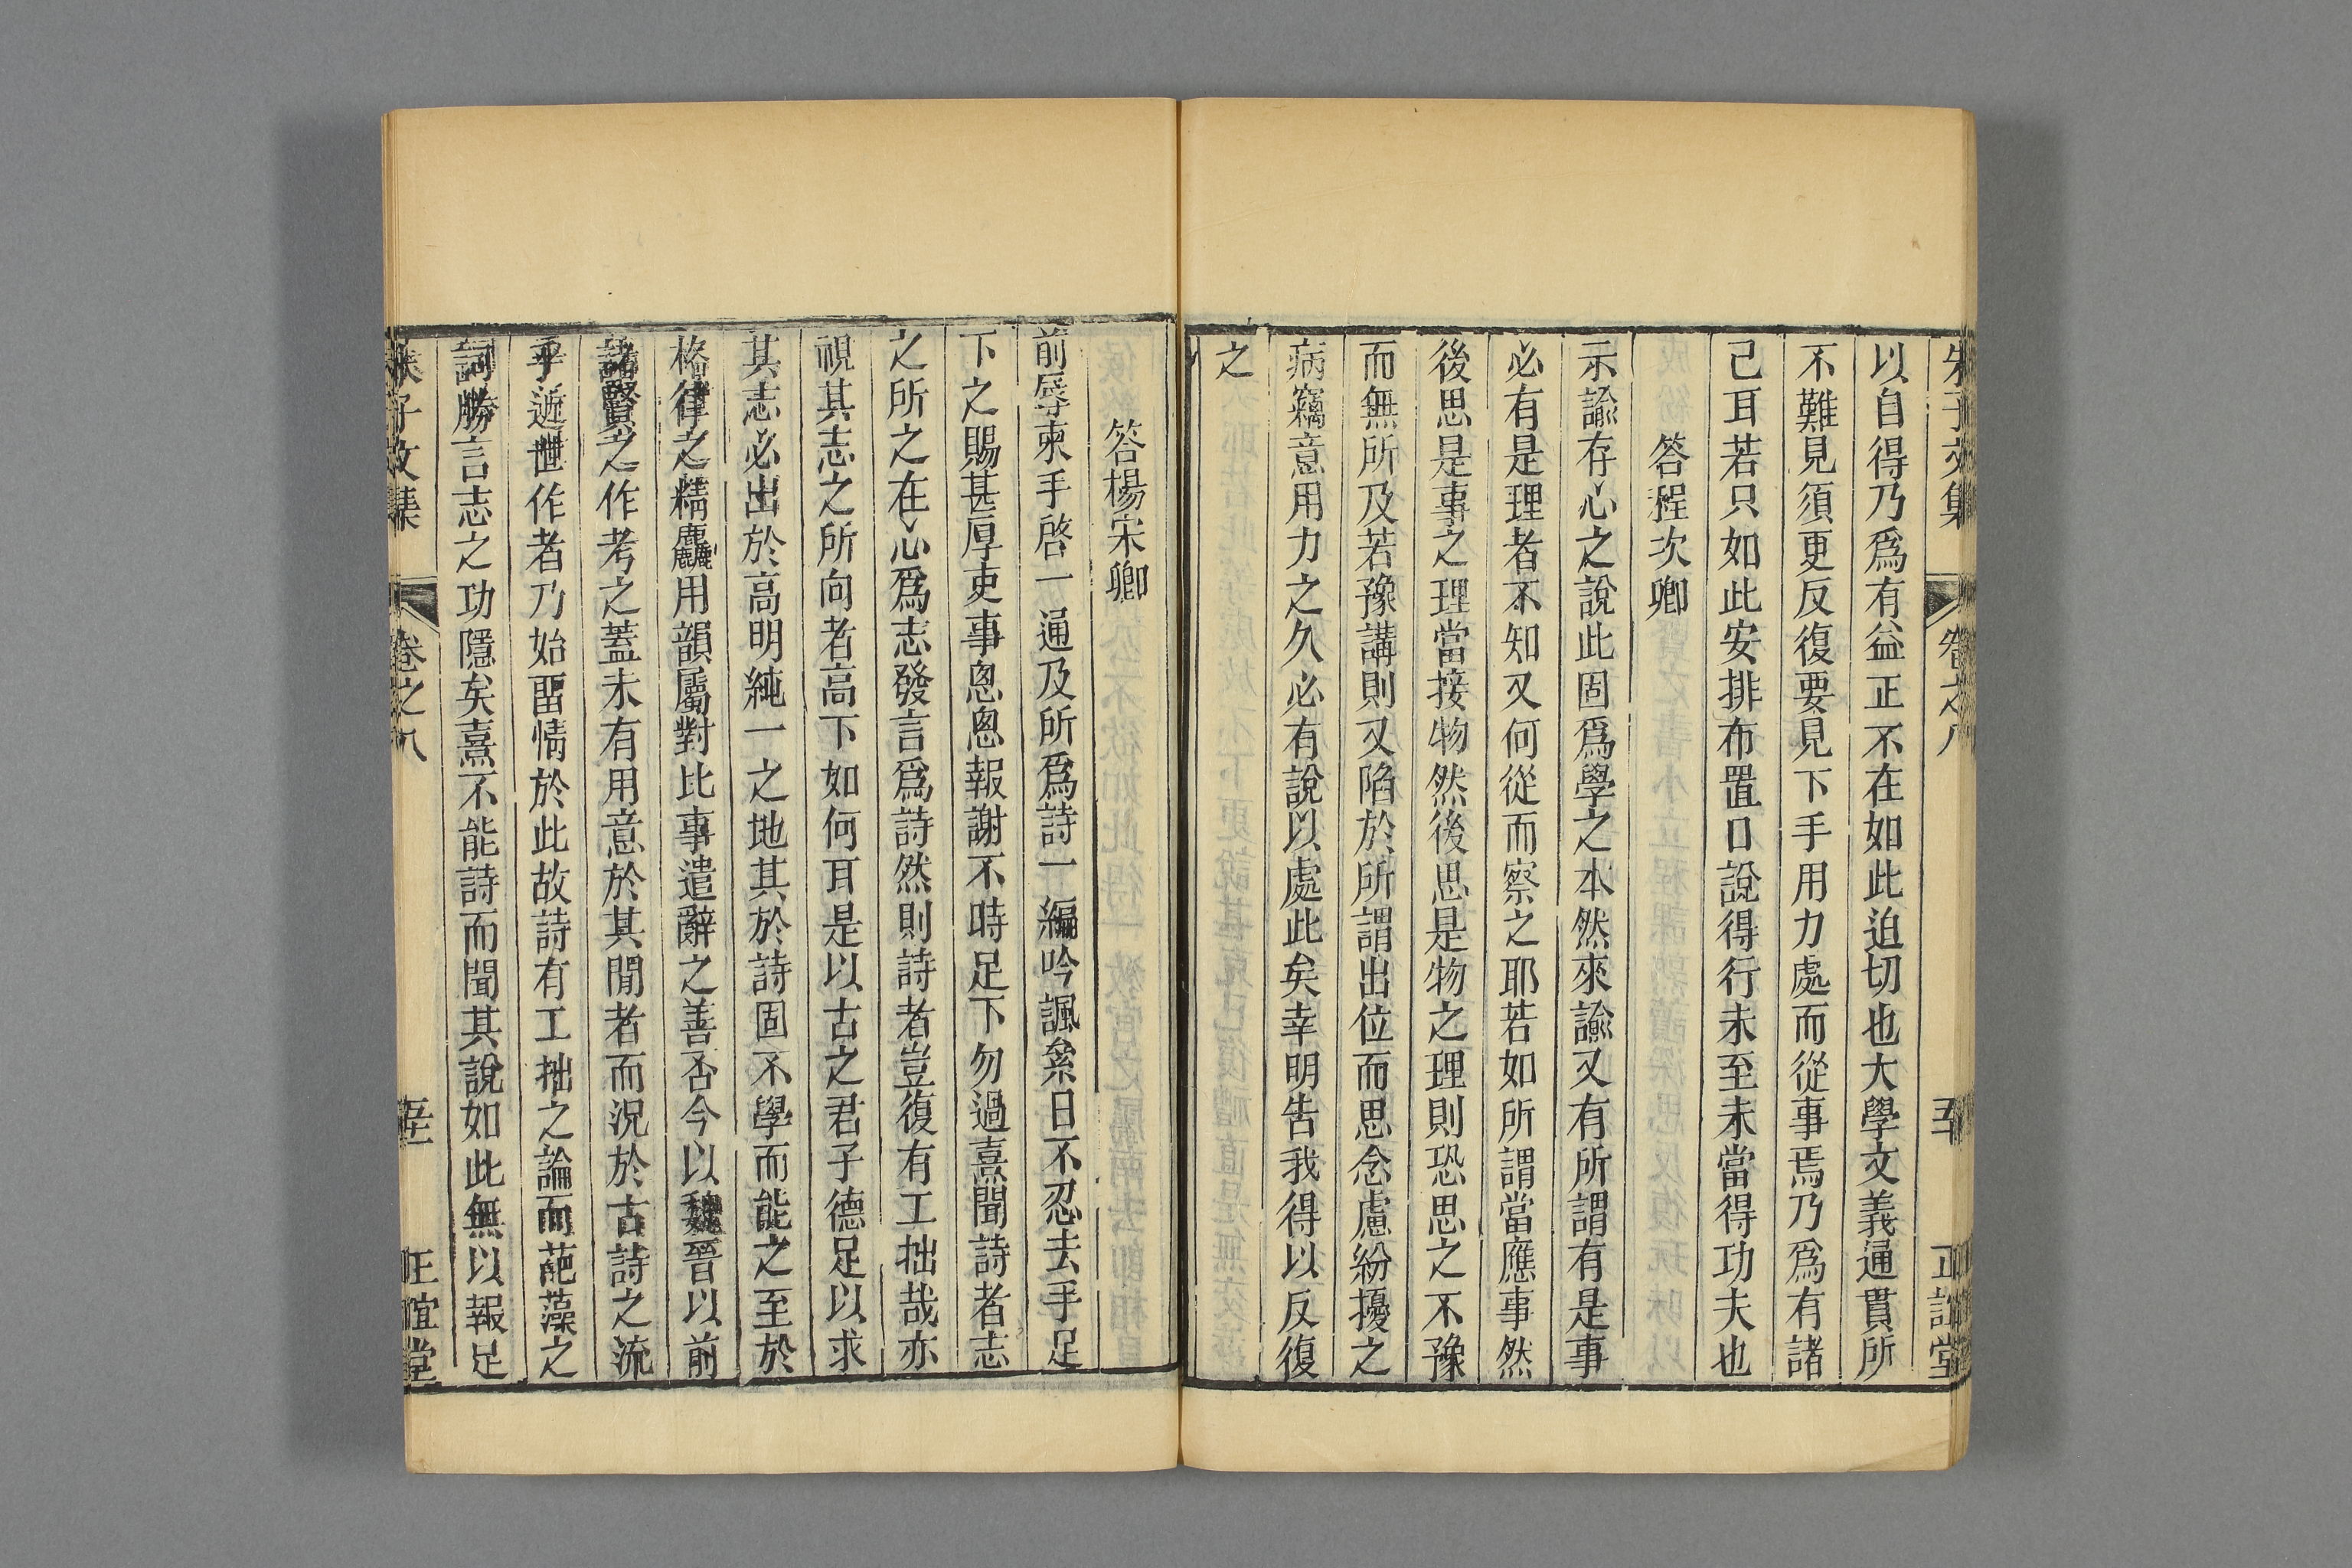 朱子文集 卷之八 五十 正誼堂
以自得乃爲有益正不在如此迫切也大學文義通貫所
不難見須更反復要見下手用力處而從事焉乃爲有諸
己耳若只如此安排布置口說得行未至未當得功夫也
答程次卿
示諭存心之說此固爲學之本然來諭又有所謂有是事
必有是理者不知又何從而察之耶若如所謂當應事然
後思是事之理當接物然後思是物之理則恐思之不豫
而無所及若豫講則又陷於所謂出位而思念慮紛擾之
病竊意用力之久必有說以處此矣幸明告我得以反復
之
答楊宋卿
前辱柬手啓一通及所爲詩一編吟諷絫日不忍去手足
下之賜甚厚吏事悤悤報謝不時足下勿過熹聞詩者志
之所之在心爲志發言爲詩然則詩者豈復有工拙哉亦
視其志之所向者高下如何耳是以古之君子德足以求
其志必出於高明純一之地其於詩固不學而能之至於
格律之精麤用韻屬對比事遣辭之善否今以魏晉以前
諸賢之作考之蓋未有用意於其閒者而況於古詩之流
乎近世作者乃始留情於此故詩有工拙之論而葩藻之
詞勝言志之功隱矣熹不能詩而聞其說如此無以報足
朱子文集 卷之八 正誼堂